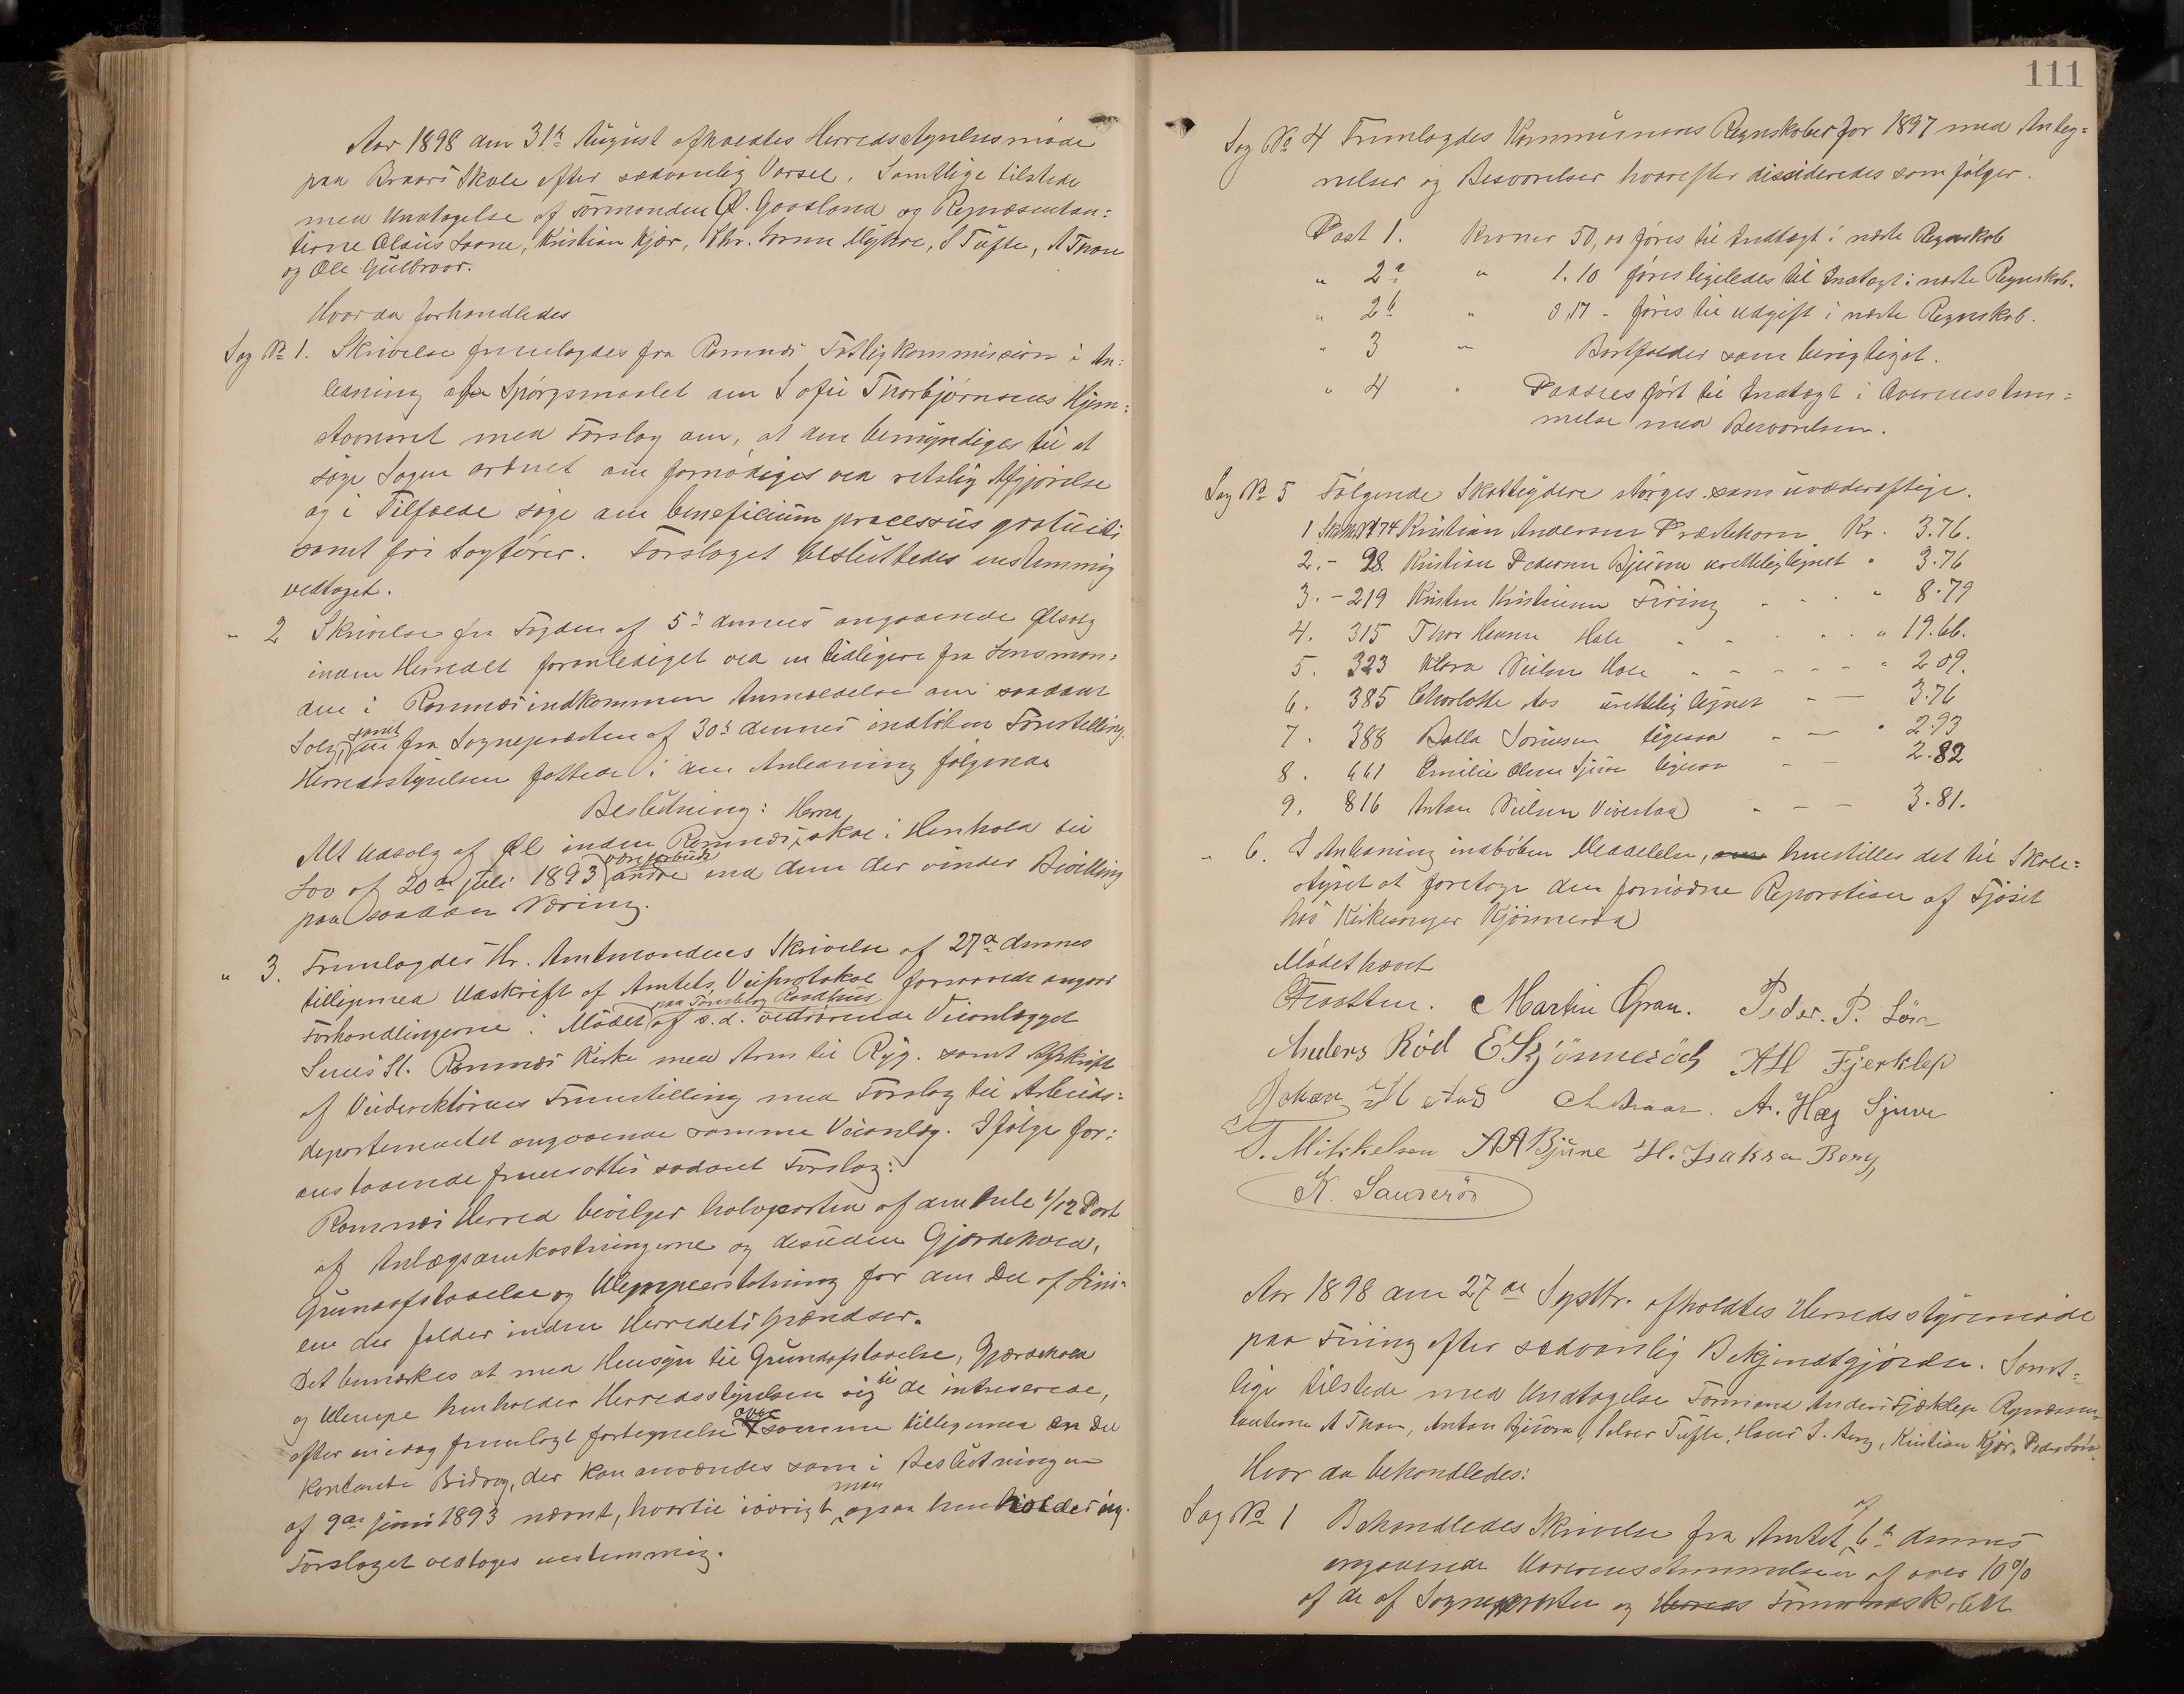 Aar 1898 den 31te August afholdtes Herredsstyrelsesmøde
paa Braars Skole efter sædvanlig Varsel. Samtlige tilstede
med Undtagelse af Formanden O. Gaasland og Repræsentan=
terne Olaus Laane, Kristian Kjær, Myhre, S Tufte, A Thon
og Ole Gulbraar.
Hvor da forhandledes
Sag No 1. Skrivelse fremlagdes fra Ramnæs Fattigkommission i An=
ledning af Spørgsmaalet om Sofie Thorbjørnsens Hjem=
stavnsret med Forslag om, at den bemyndiges til at
søge Sagen ordnet om fornødiges ved retslig Afgjørelse
og i Tilfælde søge om beneficium processus gratuiti
samt fri Sagfører. Forslaget besluttedes enstemmig
vedtaget.
" 2 Skrivelse fra Fogden af 5te dennes angaaende Ølsalg
inden Herredet foranlediget ved en tidligere fra Lensman=
den i Ramnæs indkommen Anmeldelse om saadant
Salg, samt en fra Sognepræsten af 30te dennes indløben Forestilling.
Herredsstyrelsen fattede i den Anledning følgende
Beslutning:
Alt Udsalg af Øl inden Ramnæs Herred skal i Henhold til
Lov af 20de juli 1893 være forbudt andre end dem der vinder Bevilling
paa saadan Næring.
" 3. Fremlagdes Hr. Amtmandens Skrivelse af 27de dennes
tilligemed Udskrift af Amtets Veiprotokol forsaavidt angaar
Forhandlingerne i Mødet paa Tønsberg Raadhus af s.d. vedrørende Veianlægget
Sneis St. Ramnæs Kirke med Arm til Ryg. samt Afskrift
af Veidirektørens Fremstilling med Forslag til Arbeids=
departementet angaaende samme Veianlæg. Ifølge for=
anstaaende fremsattes sadant Forslag:
Ramnæs Herred bevilger halvparten af den hele 1/12 Part
af Anlægsomkostningerne og desuden Gjærdehold,
Grundafstaaelse og Ulempeerstatning for den Del af Lini=
en der falder inden Herredets Grændser.
Det bemærkes at med Hensyn til Grundafstaaelse, Gjærdehold
og Ulempe henholder Herredsstyrelsen sig til de interesserede,
efter en idag fremlagt fortegnelse over samme tilligemed en Del
kontante Bidrag, der kan anvendes som i Beslutningen
af 9de juni 1893 nævnt, hvortil iøvrigt man ogsaa henholder sig.
Forslaget vedtoges enstemmig.
111
Sag No 4 Fremlagdes Kommunens Regnskaber for 1897 med Anteg=
nelser og Besvarelser hvorefter dissideredes som følger.
Post 1. Kroner 50,00 føres til Indtægt i næste Regnskab
" 2a " 1.10 føres ligeledes til Indtægt i næste Regnskab.
" 2b " 0,17 - føres til udgift i næste Regnskab.
" 3 " Bortfalder som berigtiget.
" 4 " Paasees ført til Indtægt i Overensstem=
melse med Besvarelsen.
Sag No 5 Følgende Skatteydere sløiges som uvederheftige.
1 74 Kristian Andersen Præstehavn Kr. 3.76.
2. - 98. Kristian Pedersen Bjuerne urettelig lignet " 3.76
3. - 219 Kristen Kristiansen Firing - - - " 8.79
4. 315 Thor Hansen Hole " - - - " 19.66.
5. 323 Klara Nielsen Hole - - - - - " 2 09.
6. 385 Charlotte Aas urettelig lignet - — 3.76
7. 388 Balla Sørensen ligesaa - — " 2.93
8. 661 Emilie Olsen Sjuve ligesaa - — 2.82
9. 816 Anton Nielsen Vivestad - - — 3.81.
" 6. I Anledning indløben Meddelelse, henstilles det til Skole=
styret at foretage den fornødne Reparation af Fjøset
hos Kirkesanger Kjønnerød
Mødet hævet
Martin Gran. Peder. P. Løn
Anders Rød E Kjønnerød AH Fjerklep
Johan H Aas A. Hag Sjuve
T. Mikkelsen AA Bjune H. Isaksen Berg
K. Sanderød
Aar 1898 den 27de Septbr. afholdtes Herredsstyremøde
paa Firing efter sædvanlig Bekjendtgjørelse. Samt=
lige tilstede med Undtagelse Formand Anders Fjærklep Repræsen=
tanterne A Thon, Anton Bjuerne, Sølver Tufte, Hans I. Berg, Kristian Kjær, Peder Løn.
Hvor da behandledes:
Sag No 1 Behandledes Skrivelse fra Amtet af 6te dennes
angaaende Uoverensstemmelsen af over 10%
af de af Sognepræsten og Herreds Formandskabet